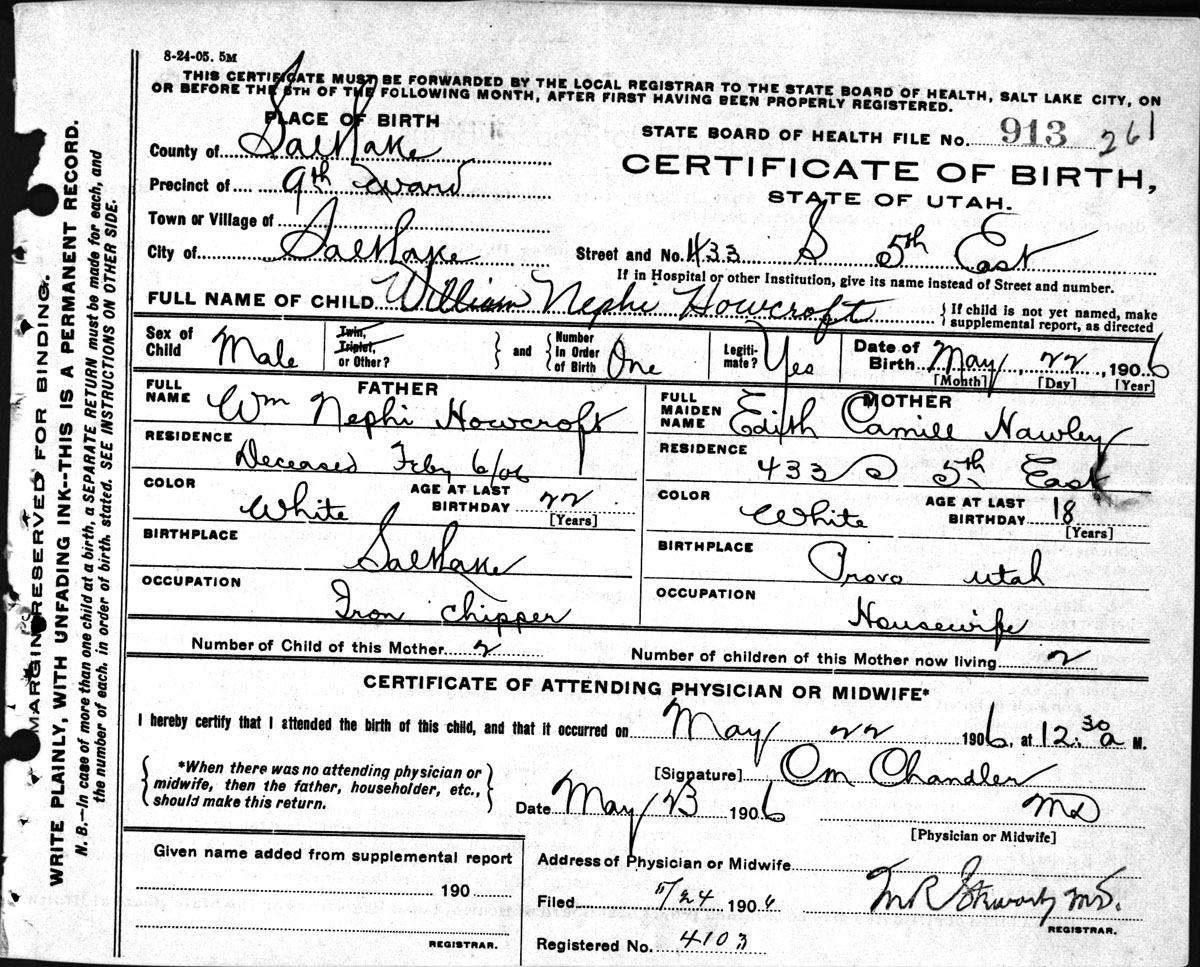 8-24-05. 5M
THIS CERTIFICATE MUST BE FORWARDED BY THE LOCAL REGISTRAR TO THE STATE BOARD OF HEALTH, SALT LAKE CITY, ON
OR BEFORE THE 5TH OF THE FOLLOWING MONTH, AFTER FIRST HAVING BEEN PROPERLY REGISTERED.
PLACE OF BIRTH
STATE BOARD OF HEALTH FILE No. 913 261
County of Salt Lake
CERTIFICATE OF BIRTH,
Precinct of 9th Ward
STATE OF UTAH.
Town or Village of
City of Salt Lake Street and No. 433 S 5th East
If in Hospital or other Institution, give its name instead of Street and number.
FULL NAME OF CHILD William Nephi Howcroft { If child is not yet named, make
supplemental report, as directed
Sex of Child Male Twin, Triplet, or Other? } and { Number in Order of Birth One Legiti-mate? Yes Date of Birth May, 22, 1906
[Month] [Day] [Year]
FATHER MOTHER
FULL NAME Wm Nephi Howcroft FULL MAIDEN NAME Edith Camill Hawley
RESIDENCE Deceased Feby 6/06 RESIDENCE 433 S 5th East
COLOR White AGE AT LAST BIRTHDAY 22 [Years] COLOR White AGE AT LAST BIRTHDAY 18 [Years]
BIRTHPLACE Salt Lake BIRTHPLACE Provo Utah
OCCUPATION Iron Chipper OCCUPATION Housewife
Number of Child of this Mother 2 Number of children of this Mother now living 2
CERTIFICATE OF ATTENDING PHYSICIAN OR MIDWIFE*
I hereby certify that I attended the birth of this child, and that it occurred on May 22 1906, at 12:30 a M.
{ *When there was no attending physician or
midwife, then the father, householder, etc.,
should make this return. }
[Signature] Om Chandler
Date May 23 1906 MD
[Physician or Midwife]
Given name added from supplemental report
190
REGISTRAR.
Address of Physician or Midwife
Filed 5/24 1906 M R Stewart MD.
REGISTRAR.
Registered No. 4103
MARGIN RESERVED FOR BINDING.
WRITE PLAINLY, WITH UNFADING INK--THIS IS A PERMANENT RECORD.
N. B.—In case of more than one child at a birth, a SEPARATE RETURN must be made for each, and
the number of each, in order of birth, stated. SEE INSTRUCTIONS ON OTHER SIDE.